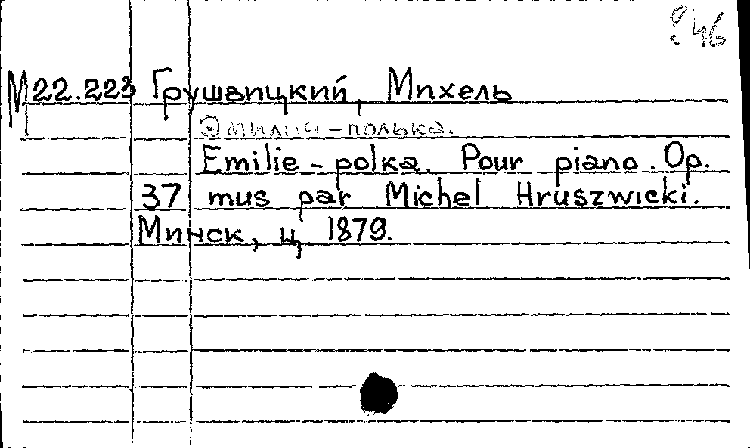 846
М22.223 Грушвицкий, Михель
Эмилия-полька.
Emilie-polka. Pour piano. Op.
37 mus par Michel Hruszwicki.
Минск, ц, 1879.